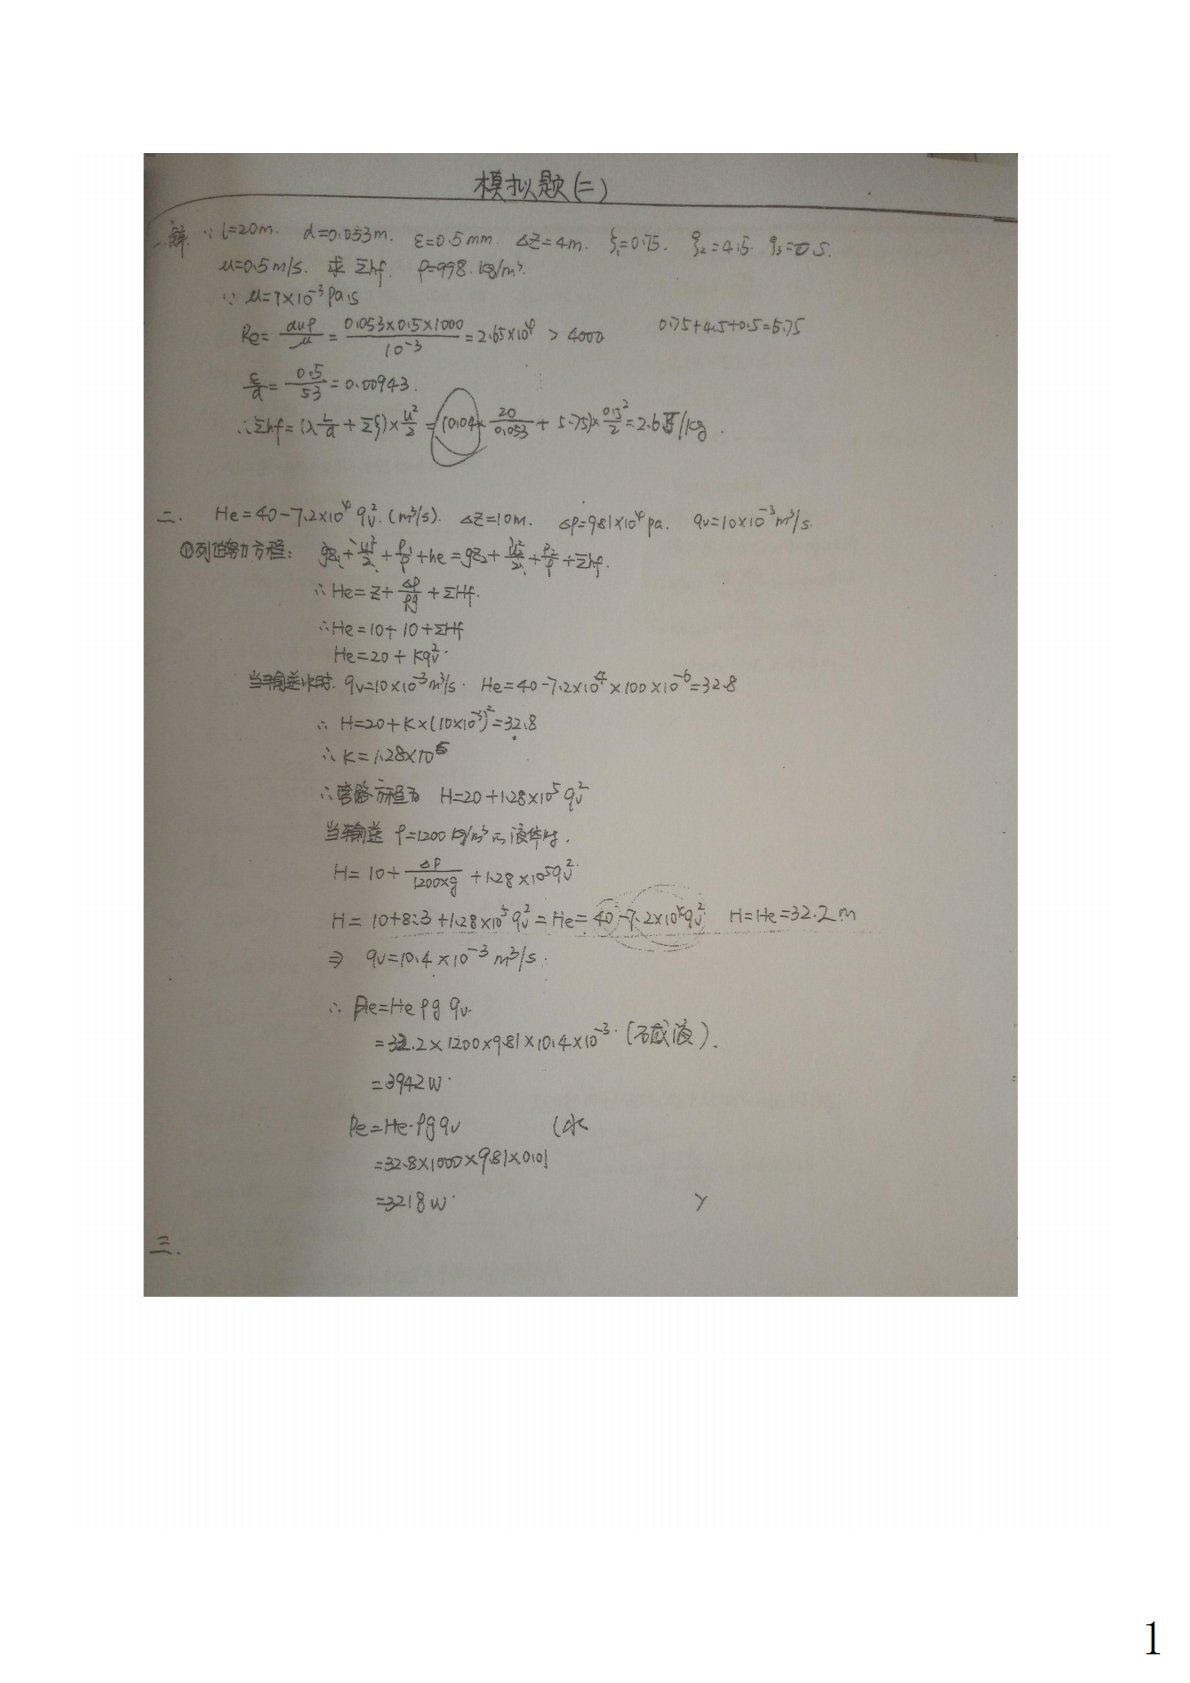 模拟题(二)
一.解: ∵ l=20m. d=0.053m. ε=0.5mm. ΔZ=4m. ξ₁=0.75. ξ₂=4.5. ξ₃=0.5.
u=0.5m/s. 求 Σhf. ρ=998.kg/m³.
∵ μ=1×10⁻³Pa.s
Re= duρ/μ = 0.053×0.5×1000/10⁻³ =2.65×10⁴ > 4000 0.75+4.5+0.5=5.75
ε/d = 0.5/53 =0.00943.
∴Σhf=(λ L/d + Σξ)× u²/2 = (0.04× 20/0.053 + 5.75)× 0.5²/2 =2.6 /kg.
二. He=40-7.2×10⁴ qv². (m³/s). ΔZ=10m. Δp=9.81×10⁴pa. qv=10×10⁻³m³/s.
①列伯努力方程: gz₁+ u₁²/2 + p₁/ρ +he=gz₂+ u₂²/2 + p₂/ρ +Σhf.
∴He=Z+ Δp/ρg +ΣHf.
∴He=10+10+ΣHf
He=20+Kqv².
当输送水时. qv=10×10⁻³m³/s. He=40-7.2×10⁴×100×10⁻⁶=32.8
∴ H=20+K×(10×10⁻³)²=32.8
∴K=1.28×10⁵
∴管路方程为 H=20+1.28×10⁵qv²
当输送 ρ=1200kg/m³的液体时.
H= 10+ Δp/1200×g +1.28×10⁵qv².
H= 10+8.3+1.28×10⁵qv²=He=40-7.2×10⁴qv² H=He=32.2m
⇒ qv=10.4×10⁻³m³/s.
∴ Pe=Heρg qv.
=32.2×1200×9.81×10.4×10⁻³. (石咸液).
=3942W.
Pe=He·ρg qv (水
=32.8×1000×9.81×0.01
=3218W.
三.
1